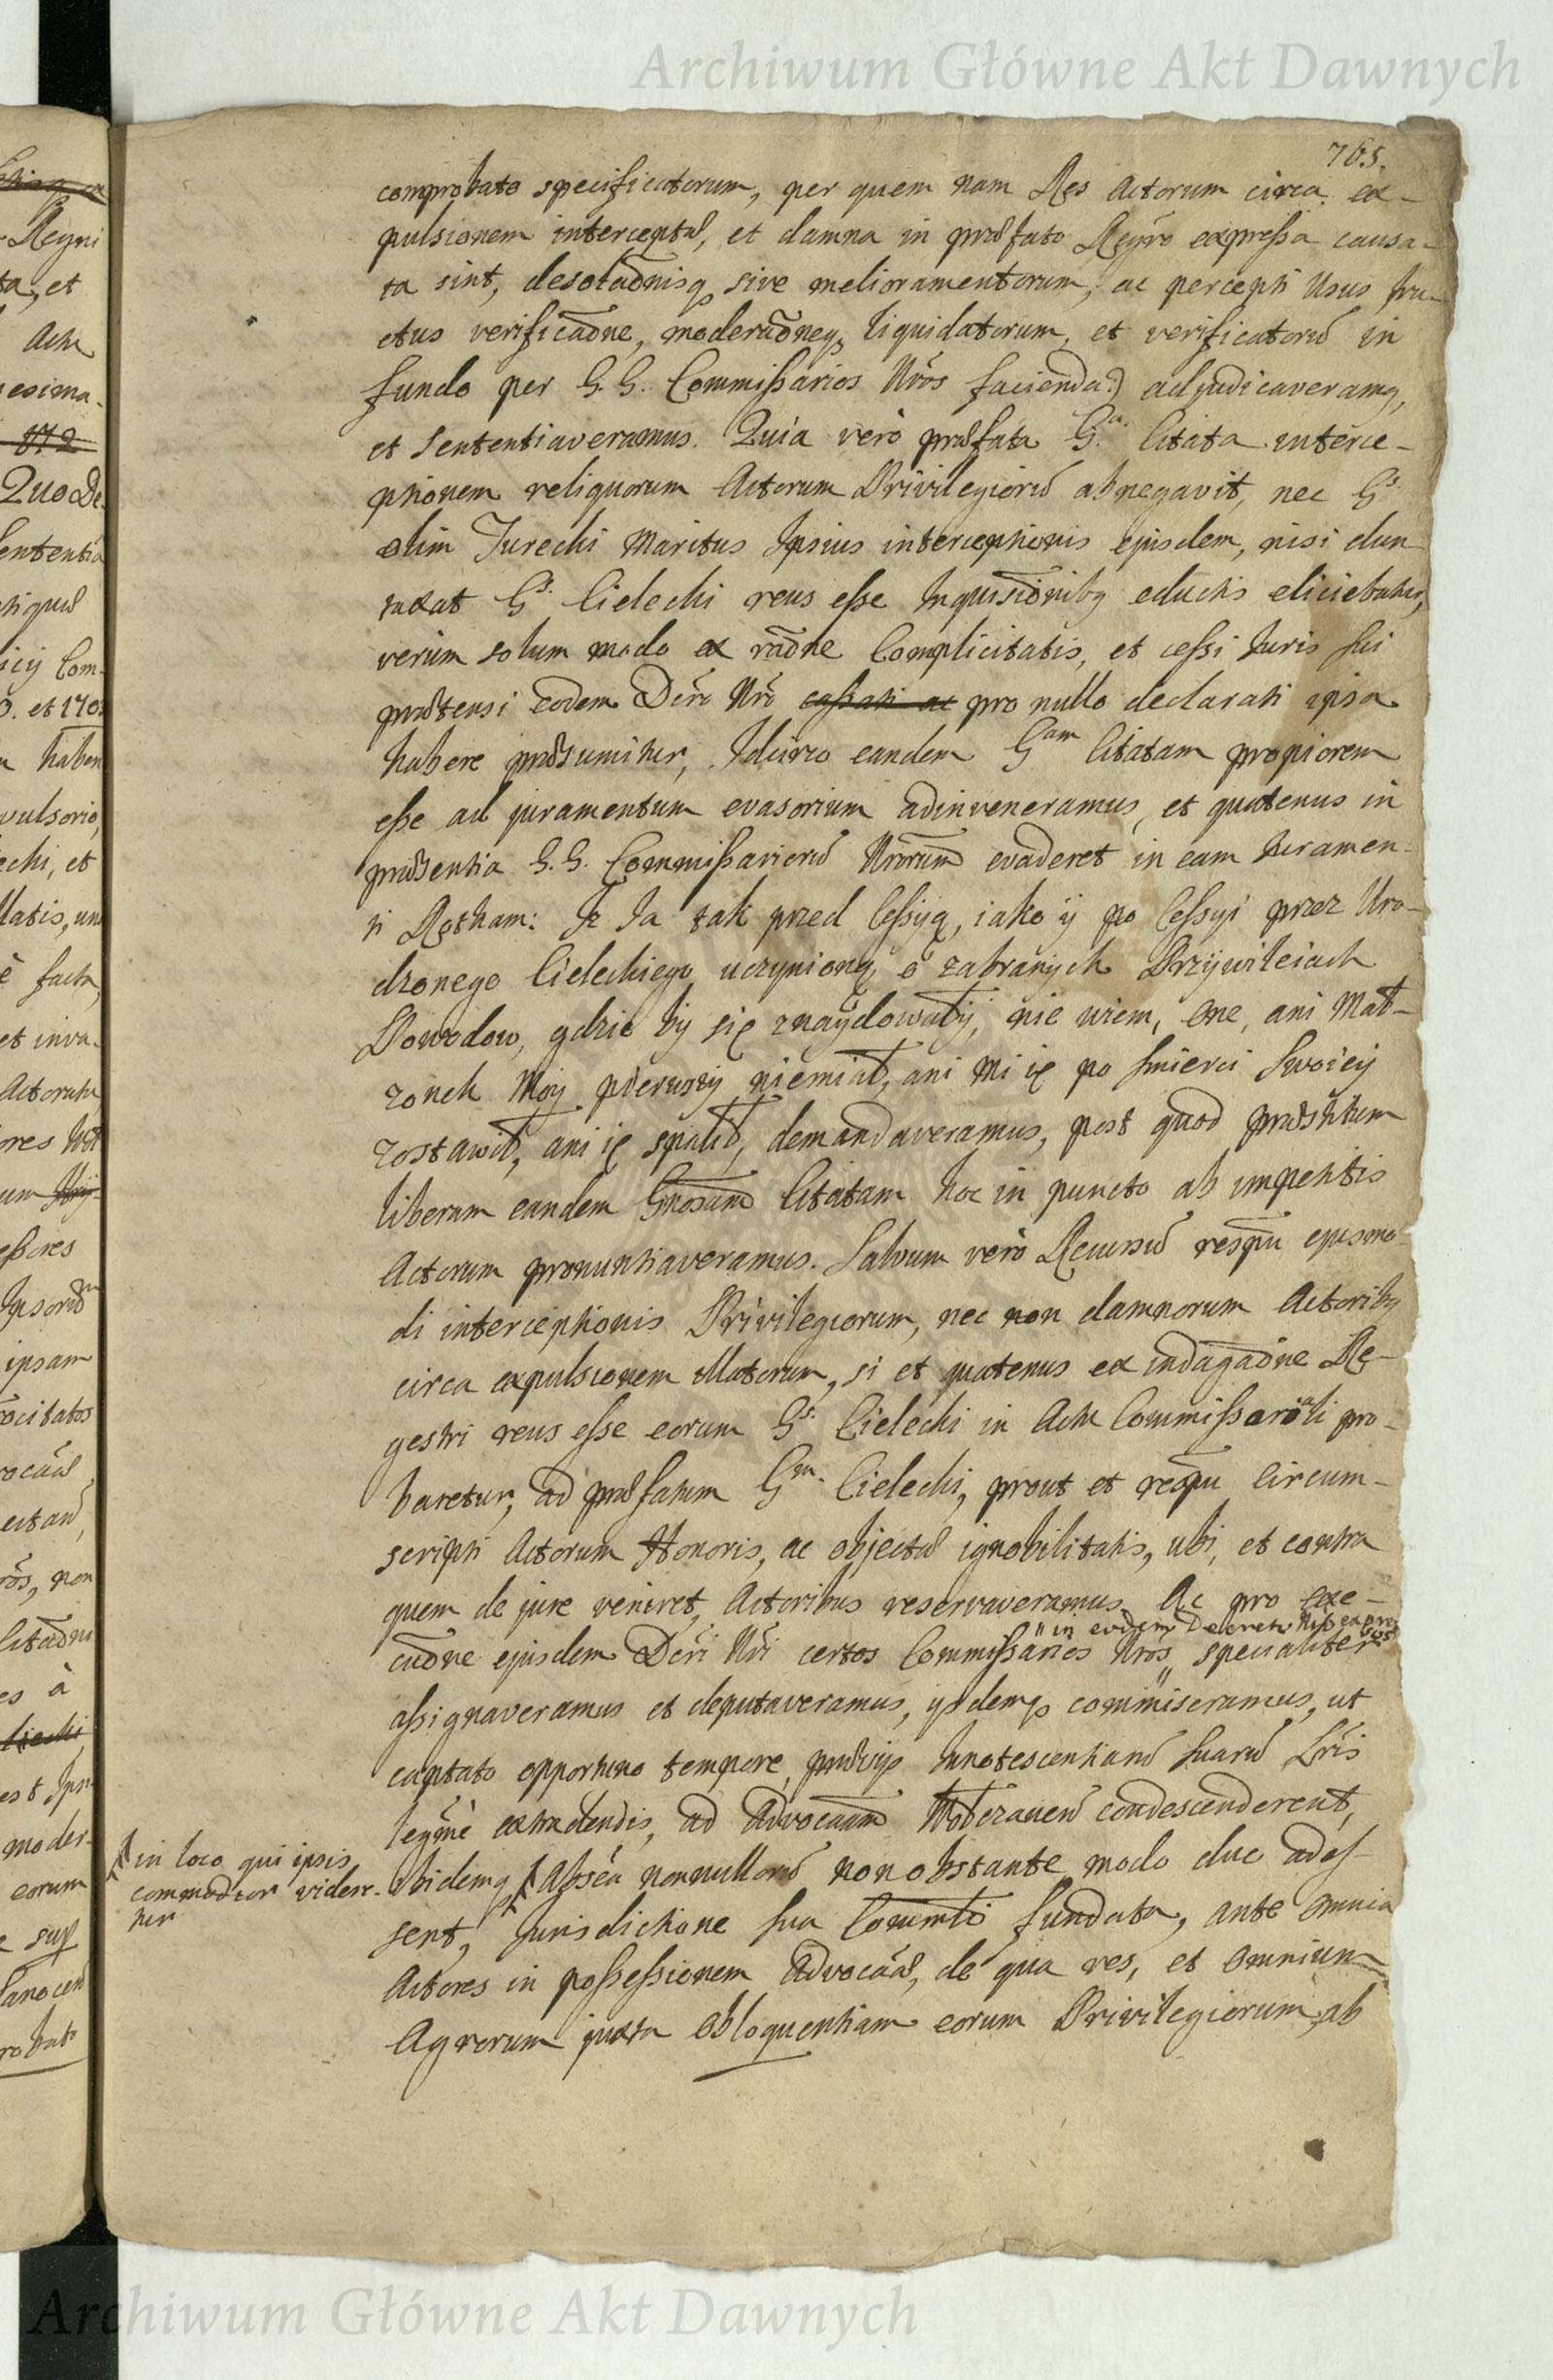 Archiwum Główne Akt Dawnych
765.
comprobato specificatorum, per quem nam Res Actorum circa ex-
pulsionem interceptæ, et damna in præfato Regr̃o expressa causa-
ta sint, desolaõnisq, sive melioramentorum, ac percepti Usus fru-
ctus verificaõne, moderaõneq, liquidatorum, et verificatorũ in
fundo per G. G. Commissarios Nr̃os facienda) adjudicaveramq,
et Sententiaveramus. Quia verò præfata G.a Citata interce-
ptionem reliquorum Actorum Privilegiorũ abnegavit, nec Gs.
olim Turecki Maritus Ipsius interceptionis ejusdem, nisi dun
taxat Gs. Cielecki reus esse Inquisiõnibq eductis eliciebatur,
verùm solum modo ex raõne Complicitatis, et cessi Iuris sui
prætensi eodem Decr̃o Nr̃o cassati ac pro nullo declarati ipsa
habere præsumitur, Idcirco eandem Gam Citatam propiorem
esse ad juramentum evasorium adinveneramus, et quatenus in
præsentia G. G. Commissariorũ Nr̃orum evaderet in eam Iuramen-
ti Rotham: Iż Ia tak przed Cessyią, iako y po Cessyi przez Uro-
dzonego Cieleckiego uczynioną o zabranych Przywileiach
Dowodow, gdzie by się znaydowały, nie wiem, one, ani Mał-
zonek Moy pierwszy niemiał, ani Mi ię po śmierci Swoiey
zostawił, ani ię spalił, demandaveramus, post quod præstitum
liberam eandem Gnosam Citatam hoc in puncto ab impetitis
Actorum pronuntiaveramus. Salvum verò Recursũ respũ ejusmo-
di interceptionis Privilegiorum, nec non damnorum Actoribq
circa expulsionem illatorum, si et quatenus ex indagaõne Re-
gestri reus esse eorum Gs. Cielecki in Actu Commissoriali pro-
baretur, ad præfatum Gm. Cielecki, prout et respũ Circum-
scripti Actorum Honoris, ac objectæ ignobilitatis, ubi, et contra
quem de jure veniret, Actoribus reservaveramus. Ac pro exe-
" in eodem Decreto N̄ro expressos
cuõne ejusdem Decr̃i Nr̃i certos Commissarios Nr̃os " specialiter
assignaveramus et deputaveramus, ijsdemq commiseramus, ut
captato opportuno tempore, prævijs Innotescentiarũ suarũ Lr̃is
legmè extradendis, ad Advocaam condescenderent,
in loco qui ipsis
commodior videre-
tur
ibidemq Absẽa nonnullorũ non obstante modo duo ades-
sent, Jurisdictione sua fundata, ante omnia
Actores in possessionem Advocaæ, de qua res, et omnium
Agrorum juxta obloquentiam eorum Privilegiorum, ab
Archiwum Główne Akt Dawnych